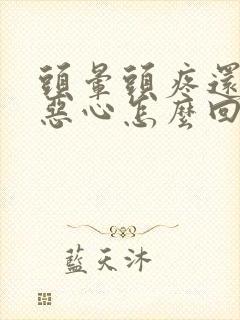 頭暈頭疼還
惡心怎麼回
藍天沐